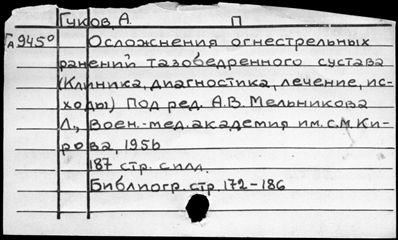 Гуков А. П
ГА 945° Осложнения огнестрельных
ранений тазобедренного сустава
(Клиника, диагностика, лечение, ис-
ходы) Под ред. А.В. Мельникова
Л., Воен.-мед. академия им. С.М. Ки-
рова, 1956
187 стр. с илл.
Библиогр. стр. 172-186